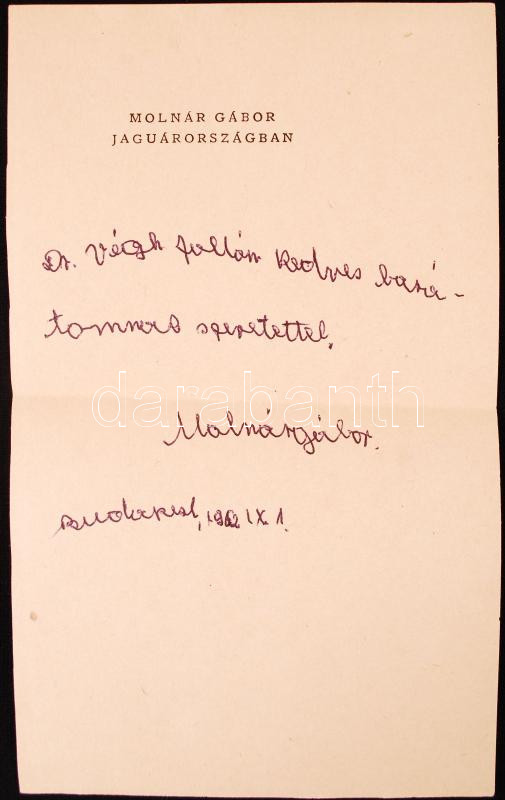 MOLNÁR GÁBOR
JAGUÁRORSZÁGBAN
Dr. Végh kedves bará-
tomnak szeretettel,
darabanth
Molnár Gábor.
Budapest, 1962 IX. 1.